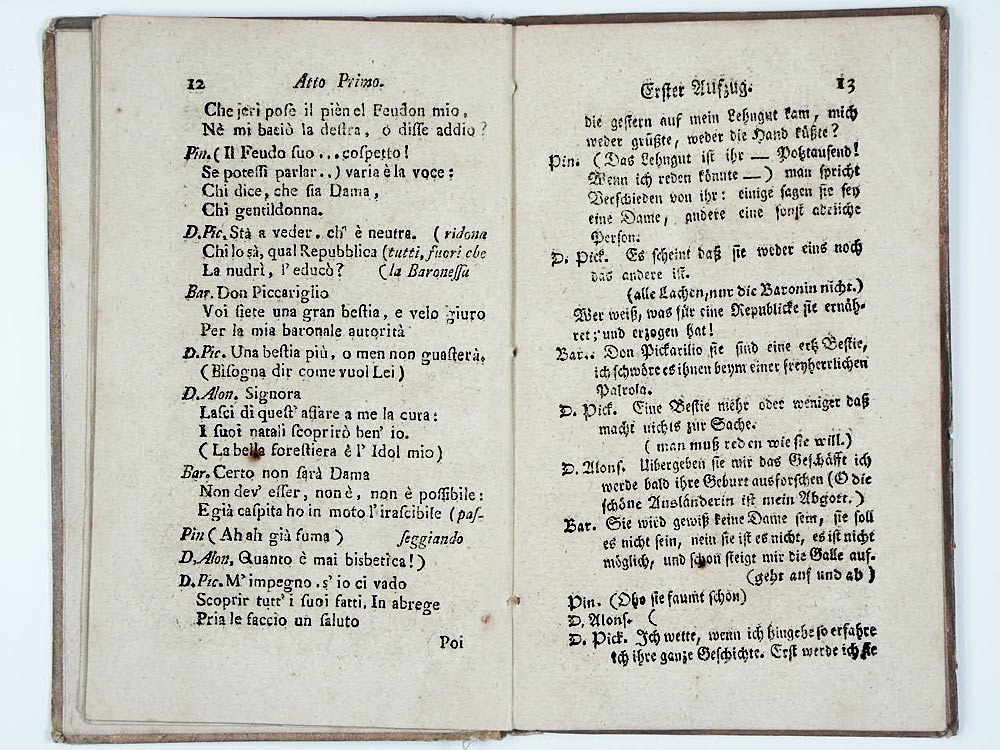 12 Atto Primo.
Che jeri pose il piè nel Feudon mio,
Nè mi baciò la destra, o disse addio?
Pin. (Il Feudo suo ... cospetto!
Se potessi parlar..) varia è la voce:
Chi dice, che sia Dama,
Chi gentildonna.
D.Pic. Stà a veder, ch' è neutra. (ridona
Chi lo sà, qual Repubblica (tutti, fuori che
La nudrì, l'educò? (la Baronessa
Bar. Don Piccariglio
Voi siete una gran bestia, e velo giuro
Per la mia baronale autorità
D.Pic. Una bestia più, o men non guasterà.
(Bisogna dir come vuol Lei)
D.Alon. Signora
Lasci di quest' affare a me la cura:
I suoi natali scoprirò ben' io.
(La bella forestiera è l' Idol mio)
Bar. Certo non sarà Dama
Non dev' esser, non è, non è possibile:
E già caspita ho in moto l'irascibile (pas-
Pin (Ah ah già fuma) seggiando
D,Alon, Quanto è mai bisbetica!)
D.Pic. M' impegno .s' io ci vado
Scoprir tutt' i suoi fatti, In abrege
Pria le faccio un saluto
Poi
Erster Aufzug. 13
die gestern auf mein Lehngut kam, mich
weder grüßte, weder die Hand küßte?
Pin. (Das Lehngut ist ihr — Potztausend!
Wenn ich reden könnte —) man spricht
Verschieden von ihr: einige sagen sie sey
eine Dame, andere eine sonst adeliche
Person.
D. Pick. Es scheint daß sie weder eins noch
das andere ist.
(alle Lachen, nur die Baronin nicht.)
Wer weiß, was für eine Republicke sie ernäh-
ret; und erzogen hat!
Bar.. Don Pickarilio sie sind eine ertz Bestie,
ich schwöre es ihnen beym einer freyherrlichen
Palrola.
D. Pick. Eine Bestie mehr oder weniger daß
macht nichts zur Sache.
(man muß reden wie sie will.)
D. Alons. Uibergeben sie mir das Geschäfft ich
werde bald ihre Geburt ausforschen (O die
schöne Ausländerin ist mein Abgott.)
Bar. Sie wird gewiß keine Dame sein, sie soll
es nicht sein, nein sie ist es nicht, es ist nicht
möglich, und schon steigt mir die Galle auf.
(geht auf und ab)
Pin. (Oho sie faumt schon)
D. Alons. (
D. Pick. Ich wette, wenn ich hingehe so erfahre
ich ihre ganze Geschichte. Erst werde ich sie